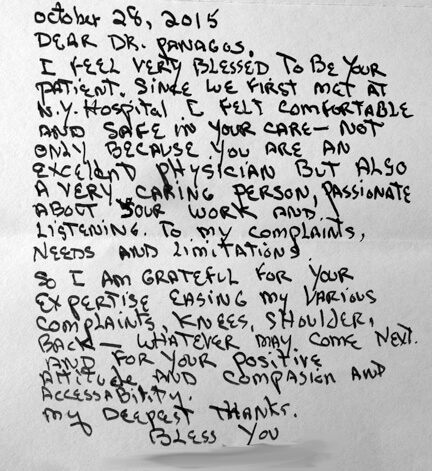 October 28, 2015
DEAR DR. PANAGOS.
I FEEL VERY BLESSED TO BE YOUR
PATIENT. SINCE WE FIRST MET AT
N.Y. HOSPITAL I FELT COMFORTABLE
AND SAFE IN YOUR CARE— NOT
ONLY BECAUSE YOU ARE AN
EXCELANT PHYSICIAN BUT ALSO
A VERY CARING PERSON, PASSIONATE
ABOUT YOUR WORK AND
LISTENING. TO MY COMPLAINTS,
NEEDS AND LIMITATIONS
SO I AM GRATEFUL FOR YOUR
EXPERTISE EASING MY VARIOUS
COMPLAINTS, KNEES, SHOULDER,
BACK— WHATEVER MAY COME NEXT.
AND FOR YOUR POSITIVE
ATTITUDE AND COMPASION AND
ACCESSABILITY.
MY DEEPEST THANKS.
BLESS YOU